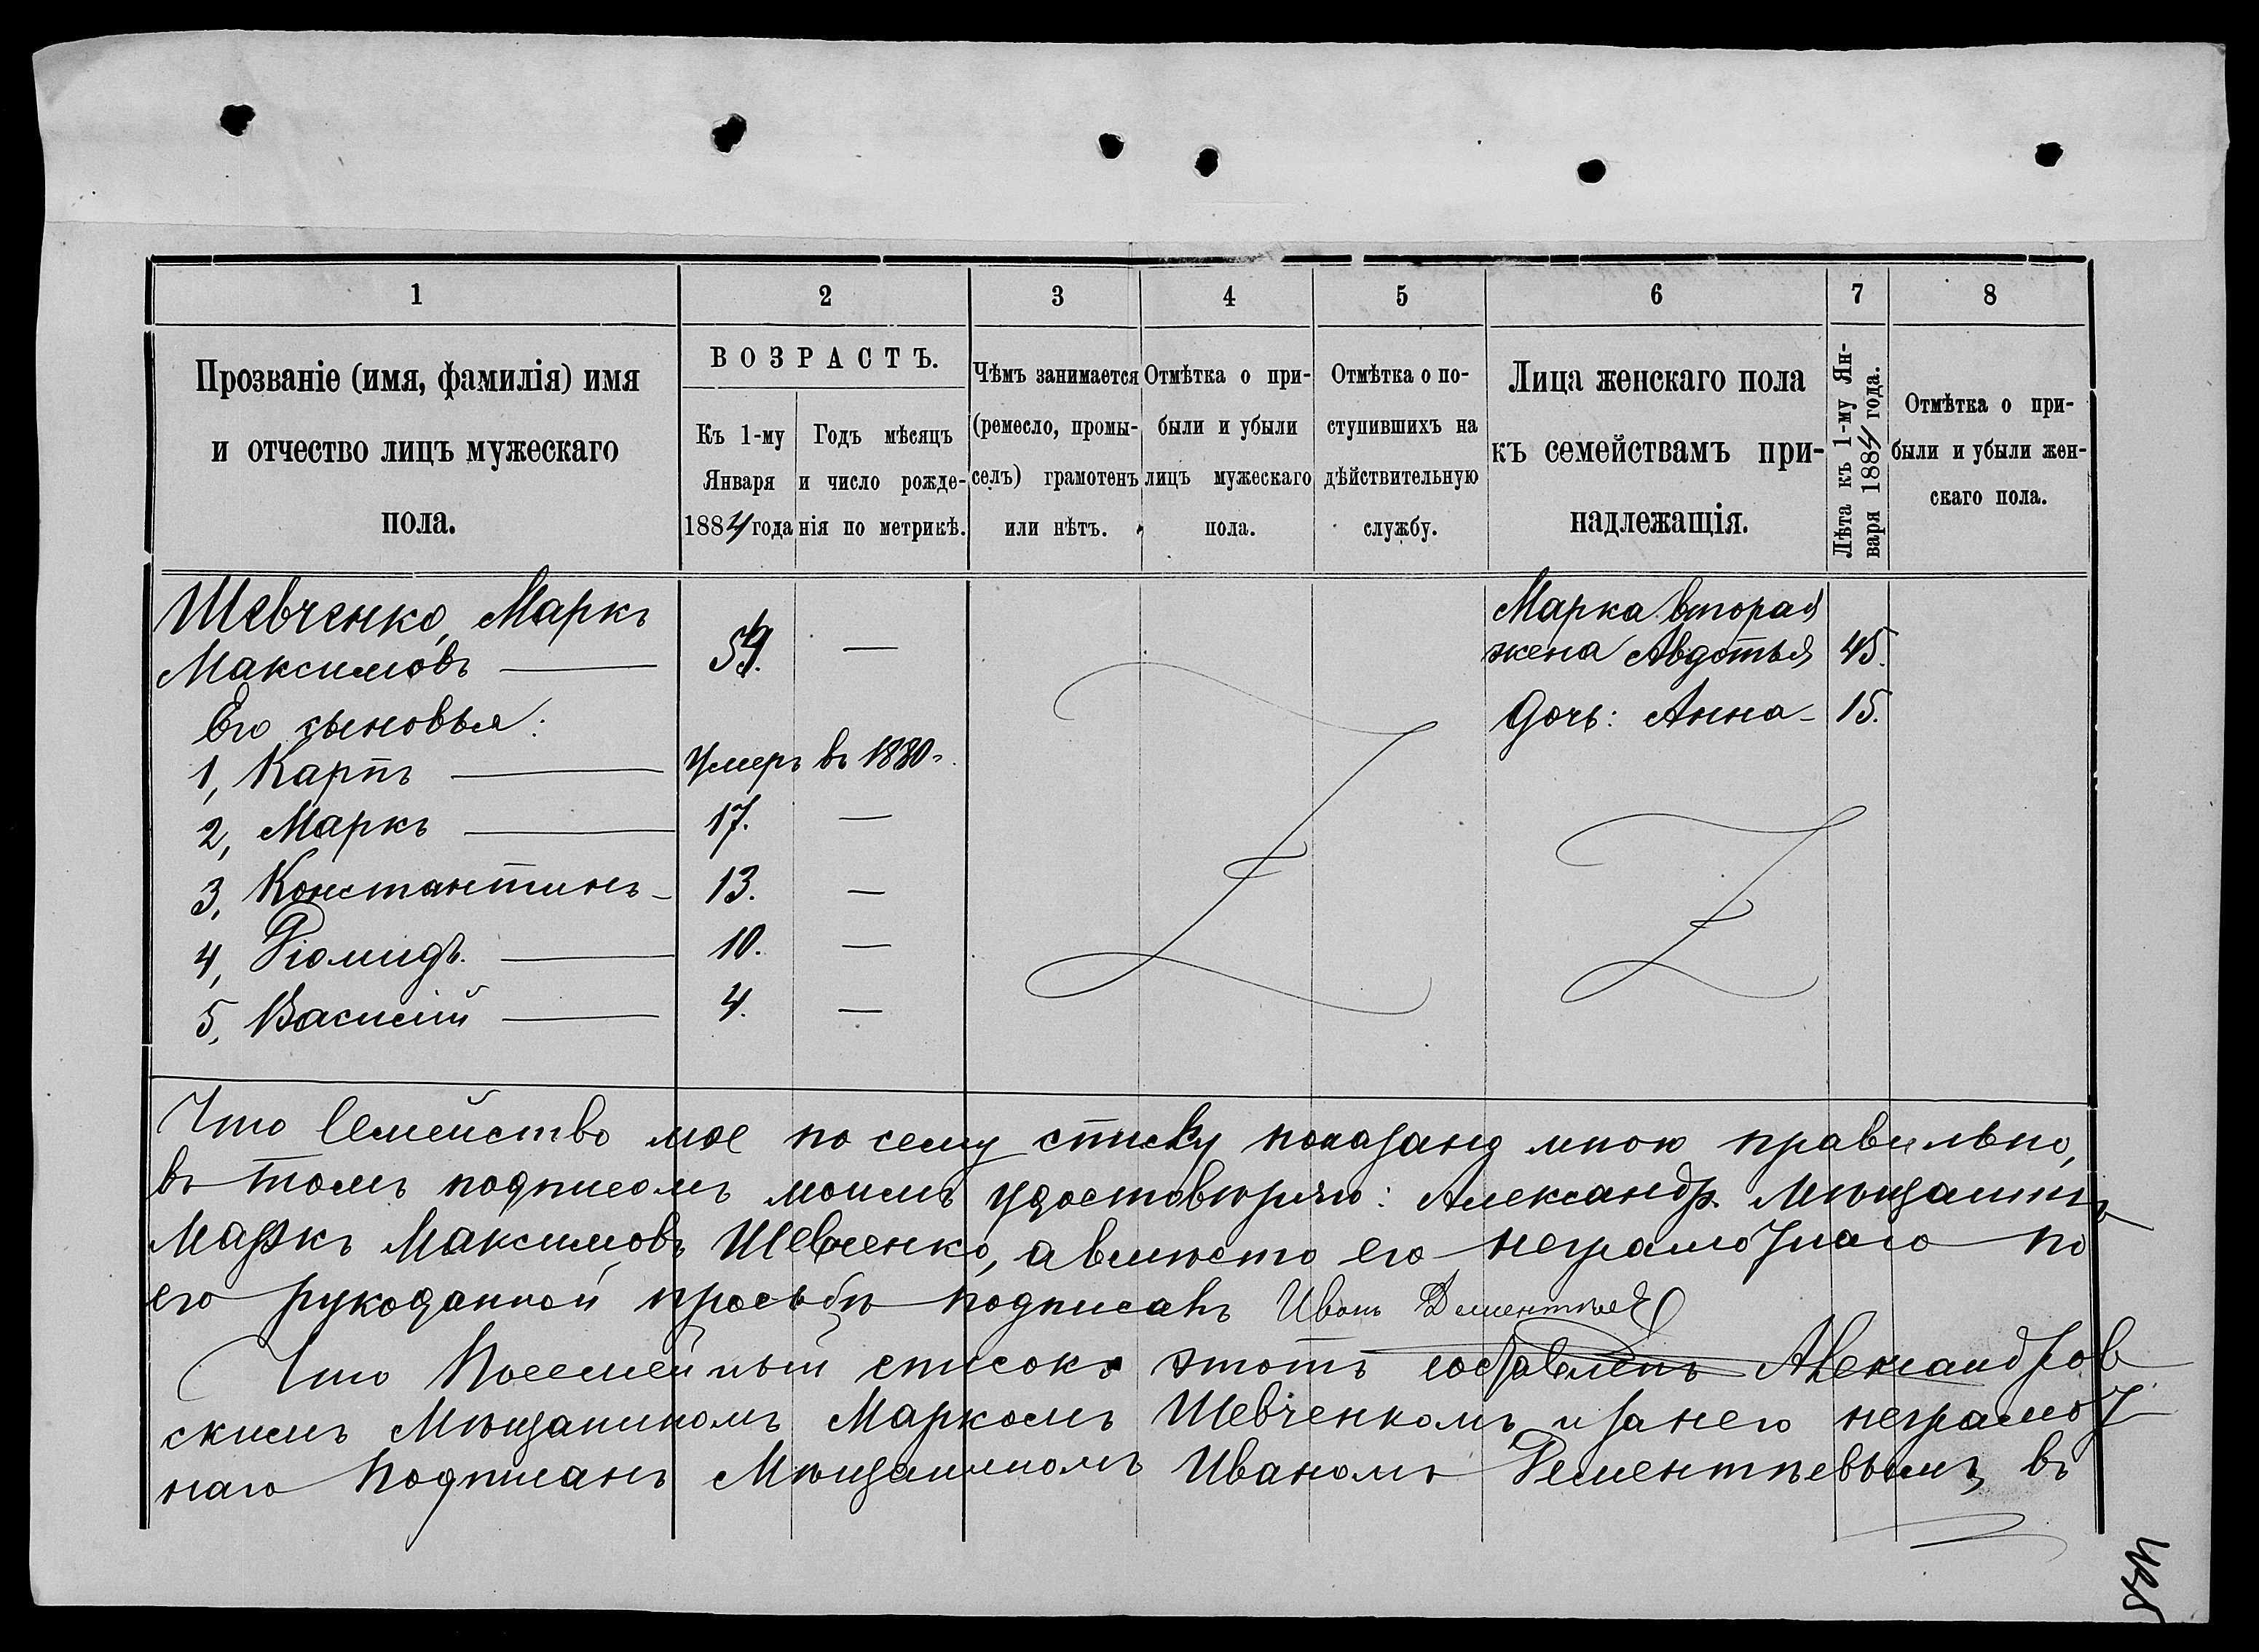 1 2 3 4 5 6 7 8
Прозваніе (имя, фамилія) имя
и отчество лицъ мужескаго
пола.
ВОЗРАСТЪ.
Къ 1-му
Января
1884 года
Годъ мѣсяцъ
и число рожде-
нія по метрикѣ.
Чѣмъ занимается
(ремесло, промы-
селъ) грамотенъ
или нѣтъ.
Отмѣтка о при-
были и убыли
лицъ мужескаго
пола.
Отмѣтка о по-
ступившихъ на
дѣйствительную
службу.
Лица женскаго пола
къ семействамъ при-
надлежащія.
Лѣта къ 1-му Ян-
варя 1884 года.
Отмѣтка о при-
были и убыли жен-
скаго пола.
Шевченко, Маркъ
Максимовъ —
Марка вторая
жена Авдотья 45.
Его сыновья:
Дочь: Анна - 15.
1, Карпъ — Умеръ въ 1880 г.
2, Маркъ — 17. —
3, Константинъ - 13. —
4, Діомидъ. — 10. —
5, Василій — 4. —
Что Семейство мое по сему списку показано мною правильно,
въ томъ подписомъ моимъ удостовѣряю: Александр. Мѣщанинъ
Маркъ Максимовъ Шевченко, а вмѣсто его неграмотнаго по
его рукоданной просьбѣ подписалъ Иванъ Дементьев
Что Посемейный списокъ этотъ составленъ Александров
скимъ Мѣщаниномъ Маркомъ Шевченкомъ и за него неграмот
наго Подписанъ Мѣщаниномъ Иваномъ Дементьевымъ, въ